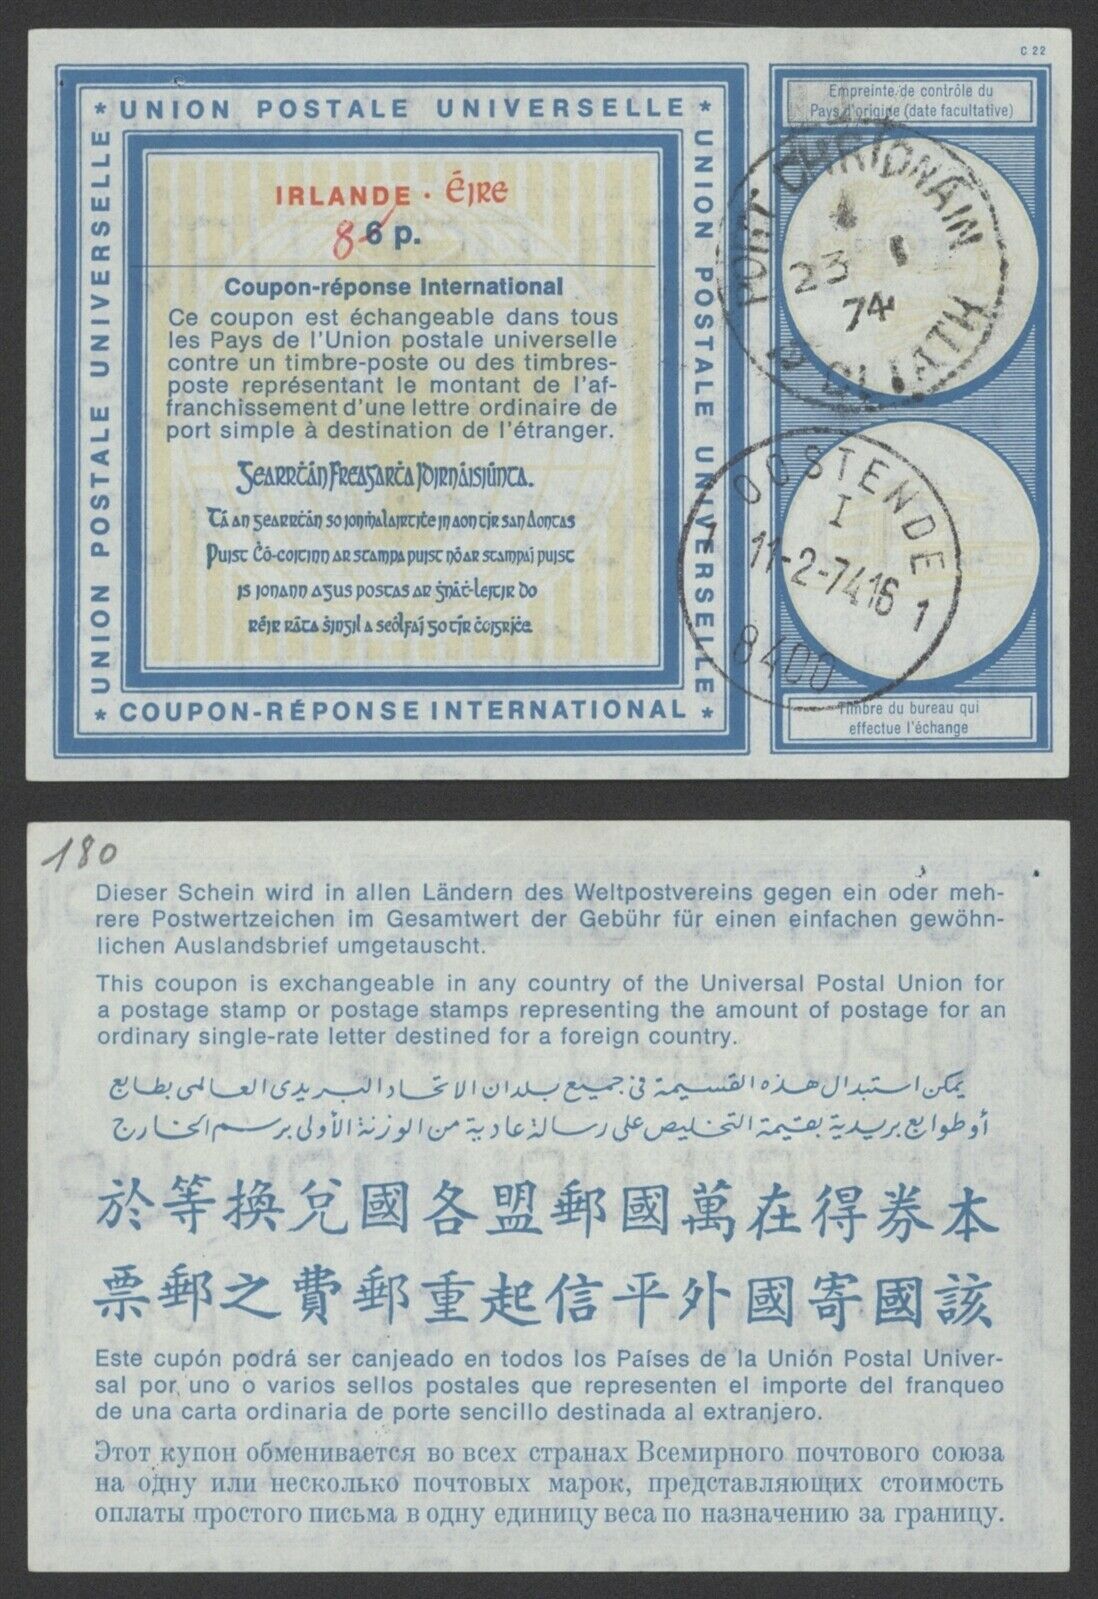 C 22
* UNION POSTALE UNIVERSELLE *
UNION POSTALE UNIVERSELLE
UNION POSTALE UNIVERSELLE
IRLANDE · ÉIRE
8 6 p.
Coupon-réponse International
Ce coupon est échangeable dans tous
les Pays de l'Union postale universelle
contre un timbre-poste ou des timbres-
poste représentant le montant de l'af-
franchissement d'une lettre ordinaire de
port simple à destination de l'étranger.
Gearrċán Freagarċa Idirnáisiúnta.
Tá an gearrċán so ionṁalairtiṫe in aon tír san Aontas
Puist Ċó-ċoitinn ar stampa puist nó ar stampaí puist
is ionann agus postas ar ġnáṫ-leitir do
réir ráta ṡingil a seólfaí go tír ċoigríċe
* COUPON-RÉPONSE INTERNATIONAL *
Empreinte de contrôle du
Pays d'origine (date facultative)
PORT
23 1
74
CLIATH
OOSTENDE
I
11-2-74 16
1 1
8400
Timbre du bureau qui
effectue l'échange
180
Dieser Schein wird in allen Ländern des Weltpostvereins gegen ein oder meh-
rere Postwertzeichen im Gesamtwert der Gebühr für einen einfachen gewöhn-
lichen Auslandsbrief umgetauscht.
This coupon is exchangeable in any country of the Universal Postal Union for
a postage stamp or postage stamps representing the amount of postage for an
ordinary single-rate letter destined for a foreign country.
يمكن استبدال هذه القسيمة فى جميع بلدان الاتحاد البريدى العالمى بطابع
أو طوابع بريدية بقيمة التخليص على رسالة عادية من الوزنة الأولى برسم الخارج
本券得在萬國郵盟各國兌換等於
該國寄國外平信起重郵費之郵票
Este cupón podrá ser canjeado en todos los Países de la Unión Postal Univer-
sal por uno o varios sellos postales que representen el importe del franqueo
de una carta ordinaria de porte sencillo destinada al extranjero.
Этот купон обменивается во всех странах Всемирного почтового союза
на одну или несколько почтовых марок, представляющих стоимость
оплаты простого письма в одну единицу веса по назначению за границу.